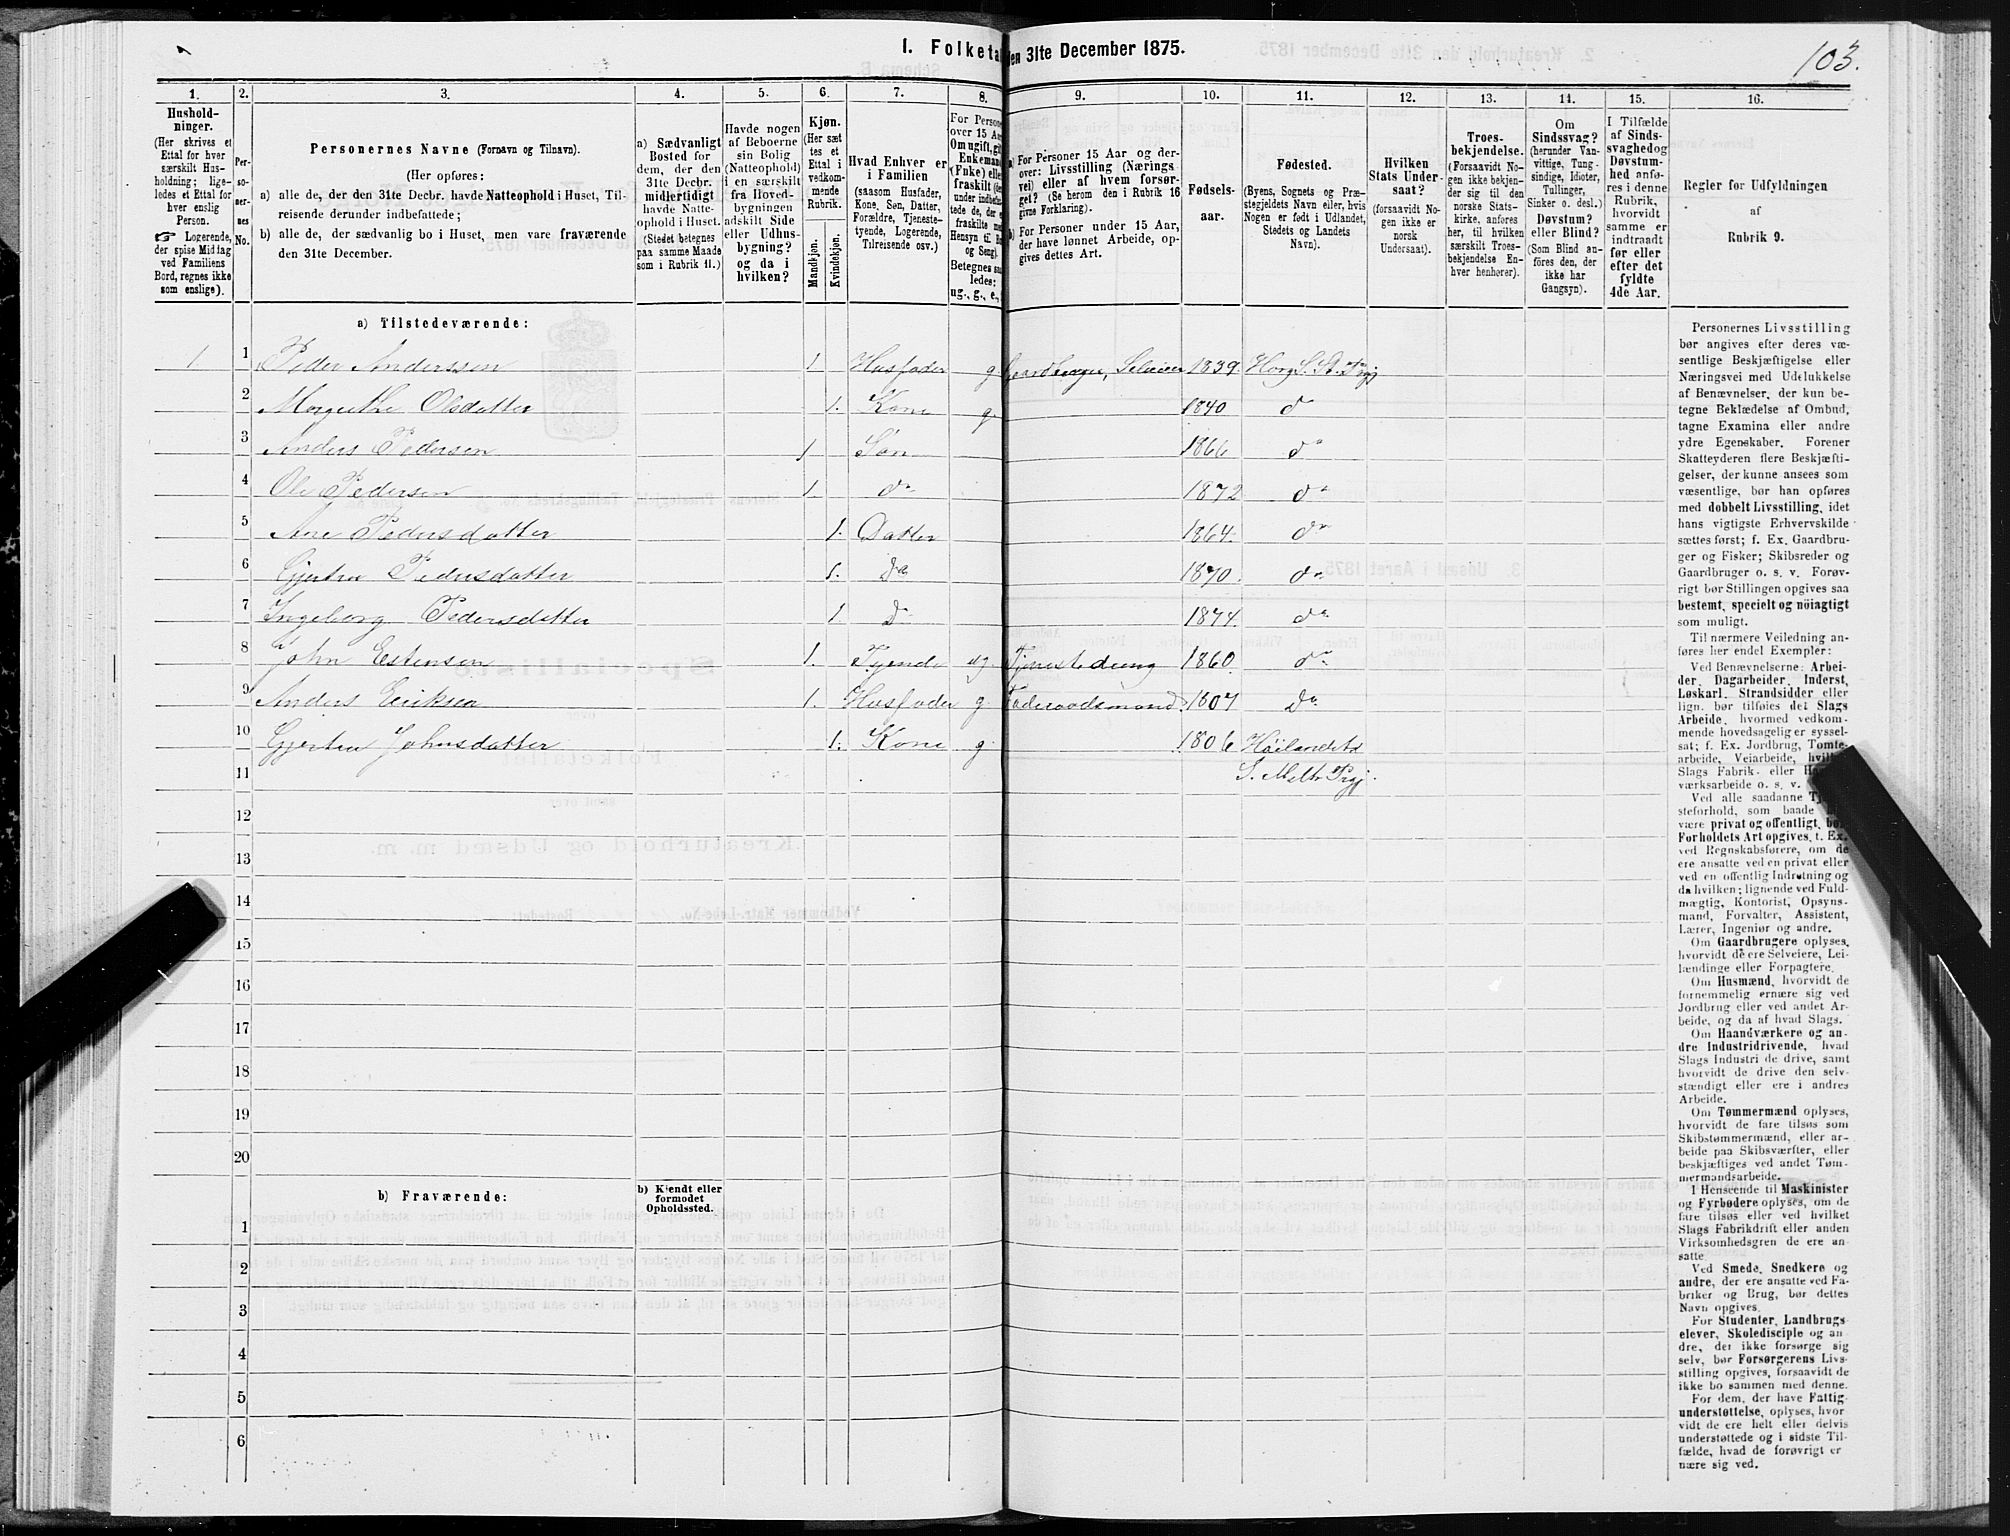 1. Folketa en 31te December 1875.
103.
1. 2. 3. 4. 5. 6. 7. 8. 9. 10. 11. 12. 13. 14. 15. 16.
Hushold-
ninger.
(Her skrives et
Ettal for hver
særskilt Hus-
holdning; lige-
ledes et Ettal for
hver enslig
Person.
☞ Logerende,
der spise Middag
ved Familiens
Bord, regnes ikke
som enslige).
Per-
so-
ner-
nes
No.
Personernes Navne (Fornavn og Tilnavn).
(Her opføres:
a) alle de, der den 31te Decbr. havde Natteophold i Huset, Til-
reisende derunder indbefattede;
b) alle de, der sædvanlig bo i Huset, men vare fraværende
den 31te December.
a) Sædvanligt
Bosted for
dem, der den
31te Decbr.
midlertidigt
havde Natte-
ophold i Huset.
(Stedet betegnes
paa samme Maade
som i Rubrik 11.)
Havde nogen
af Beboerne
sin Bolig
(Natteophold)
i en særskilt
fra Hoved-
bygningen
adskilt Side
eller Udhus-
bygning?
og da i
hvilken?
Kjøn.
(Her sæt
tes et
Ettal i
vedkom-
mende
Rubrik.
Mandkjøn.
Kvindekjøn.
Hvad Enhver er
i Familien
(saasom Husfader,
Kone, Søn, Datter,
Forældre, Tjeneste-
tyende, Logerende,
Tilreisende osv.)
For Persone
over 15 Aar
Om ugift, gif
Enkemand
(Enke) elle
fraskilt
Betegnes saa
ledes:
ug., g., e.,
a) For Personer 15 Aar og der-
over: Livsstilling (Nærings
vei) eller af hvem forsør-
get? (Se herom den i Rubrik 16
givne Forklaring).
b) For Personer under 15 Aar,
der have lønnet Arbeide, op-
gives dettes Art.
Fødsels-
aar.
Fødested.
(Byens, Sognets og Præ-
stegjeldets Navn eller, hvis
Nogen er født i Udlandet,
Stedets og Landets
Navn).
Hvilken
Stats Under-
saat?
(forsaavidt No-
gen ikke er
norsk
Undersaat).
Troes-
bekjendelse.
(Forsaavidt No-
gen ikke bekjen-
der sig til den
norske Stats-
kirke, anføres
her, til hvilken
særskilt Troes-
bekjendelse En-
hver henhører).
Om
Sindssvag?
(herunder Van-
vittige, Tung-
sindige, Idioter,
Tullinger,
Sinker o. desl.)
Døvstum?
eller Blind?
(Som Blind an-
føres den, der
ikke har
Gangsyn).
I Tilfælde
af Sinds-
svaghed og
Døvstum-
hed anfø-
res i denne
Rubrik,
hvorvidt
samme er
indtraadt
før eller
efter det
fyldte
4de Aar.
Regler for Udfyldningen
af
Rubrik 9.
a) Tilstedeværende:
1. 1 Peder Anderssen 1. Husfader g. Gaardbruger, Selveier 1839. Horg S. St. Prgj
2 Margrethe Olsdatter 1. Kone g. 1840 do
3 Anders Pedersen 1 Søn 1866 do
4 Ole Pedersen 1. do 1872 do
5 Ane Pedersdatter 1. Datter 1864. do
6 Gjertru Pedersdatter 1. Do 1870. do
7 Ingeborg Pedersdatter 1 Do 1874. do
8 John Estensen 1. Tyende ug Tjenestedreng 1860. do
9 Anders Eriksen 1. Husfader g. Føderaadsmand. 1807 Do
10 Gjertru Johnsdatter 1. Kone g. 1806 Høilandets
S. Prgj.
11
12
13
14
15
16
17
18
19
20
b) Fraværende:
b) Kjendt eller
formodet
Opholdssted.
1
2
3
4
5
6
Personernes Livsstilling
bør angives efter deres væ-
sentlige Beskjæftigelse eller
Næringsvei med Udelukkelse
af Benævnelser, der kun be-
tegne Beklædelse af Ombud,
tagne Examina eller andre
ydre Egenskaber. Forener
Skatteyderen flere Beskjæfti-
gelser, der kunne ansees som
væsentlige, bør han opføres
med dobbelt Livsstilling, idet
hans vigtigste Erhvervskilde
sættes først; f. Ex. Gaardbru-
ger og Fisker; Skibsreder og
Gaardbruger o. s. v. Forøv-
rigt bør Stillingen opgives saa
bestemt, specielt og nöiagtigt
som muligt.
Til nærmere Veiledning an-
føres her endel Exempler:
Ved Benævnelserne: Arbei-
der, Dagarbeider, Inderst,
Løskarl, Strandsidder eller
lign. bør tilføies det Slags
Arbeide, hvormed vedkom-
mende hovedsagelig er syssel-
sat; f. Ex. Jordbrug, Tomte-
arbeide, Veiarbeide,
Slags Fabrik- eller
værksarbeide o. s. v.
Ved alle saadanne
steforhold, som baade
være privat og offentligt,
Forholdets Art opgives, t. Ex.
ved Regnskabsførere, om de
ere ansatte ved en privat eller
ved en offentlig Indretning og
da hvilken; lignende ved Fuld-
mægtig, Kontorist, Opsyns-
mand, Forvalter, Assistent,
Lærer, Ingeniør og andre.
Om Gaardbrugere oplyses,
hvorvidt de ere Selveiere, Lei-
lændinge eller Forpagtere.
Om Husmænd, hvorvidt de
fornemmelig ernære sig ved
Jordbrug eller ved andet Ar-
beide, og da af hvad Slags.
Om Haandværkere og an-
dre Industridrivende, hvad
Slags Industri de drive, samt
hvorvidt de drive den selv-
stændigt eller ere i andres
Arbeide.
Om Tømmermænd oplyses,
hvorvidt de fare tilsøs som
Skibstømmermænd, eller ar-
beide paa Skibsværfter, eller
beskjæftiges ved andet Tøm-
mermandsarbeide.
I Henseende til Maskinister
og Fyrbødere oplyses, om de
fare tilsøs eller ved hvilket
Slags Fabrikdrift eller anden
Virksomhedsgren de ere an-
satte.
Ved Smede, Snedkere og
andre, der ere ansatte ved Fa-
briker og Brug, bør dettes
Navn opgives.
For Studenter, Landbrugs-
elever, Skoledisciple og an-
dre, der ikke forsørge sig
selv, bør Forsørgerens Livs-
stilling opgives, forsaavidt de
ikke bo sammen med denne.
For dem, der have Fattig-
understøttelse, oplyses, hvor-
vidt de ere helt eller delvis
understøttede og i sidste Til-
fælde, hvad de forøvrigt er-
nære sig ved.